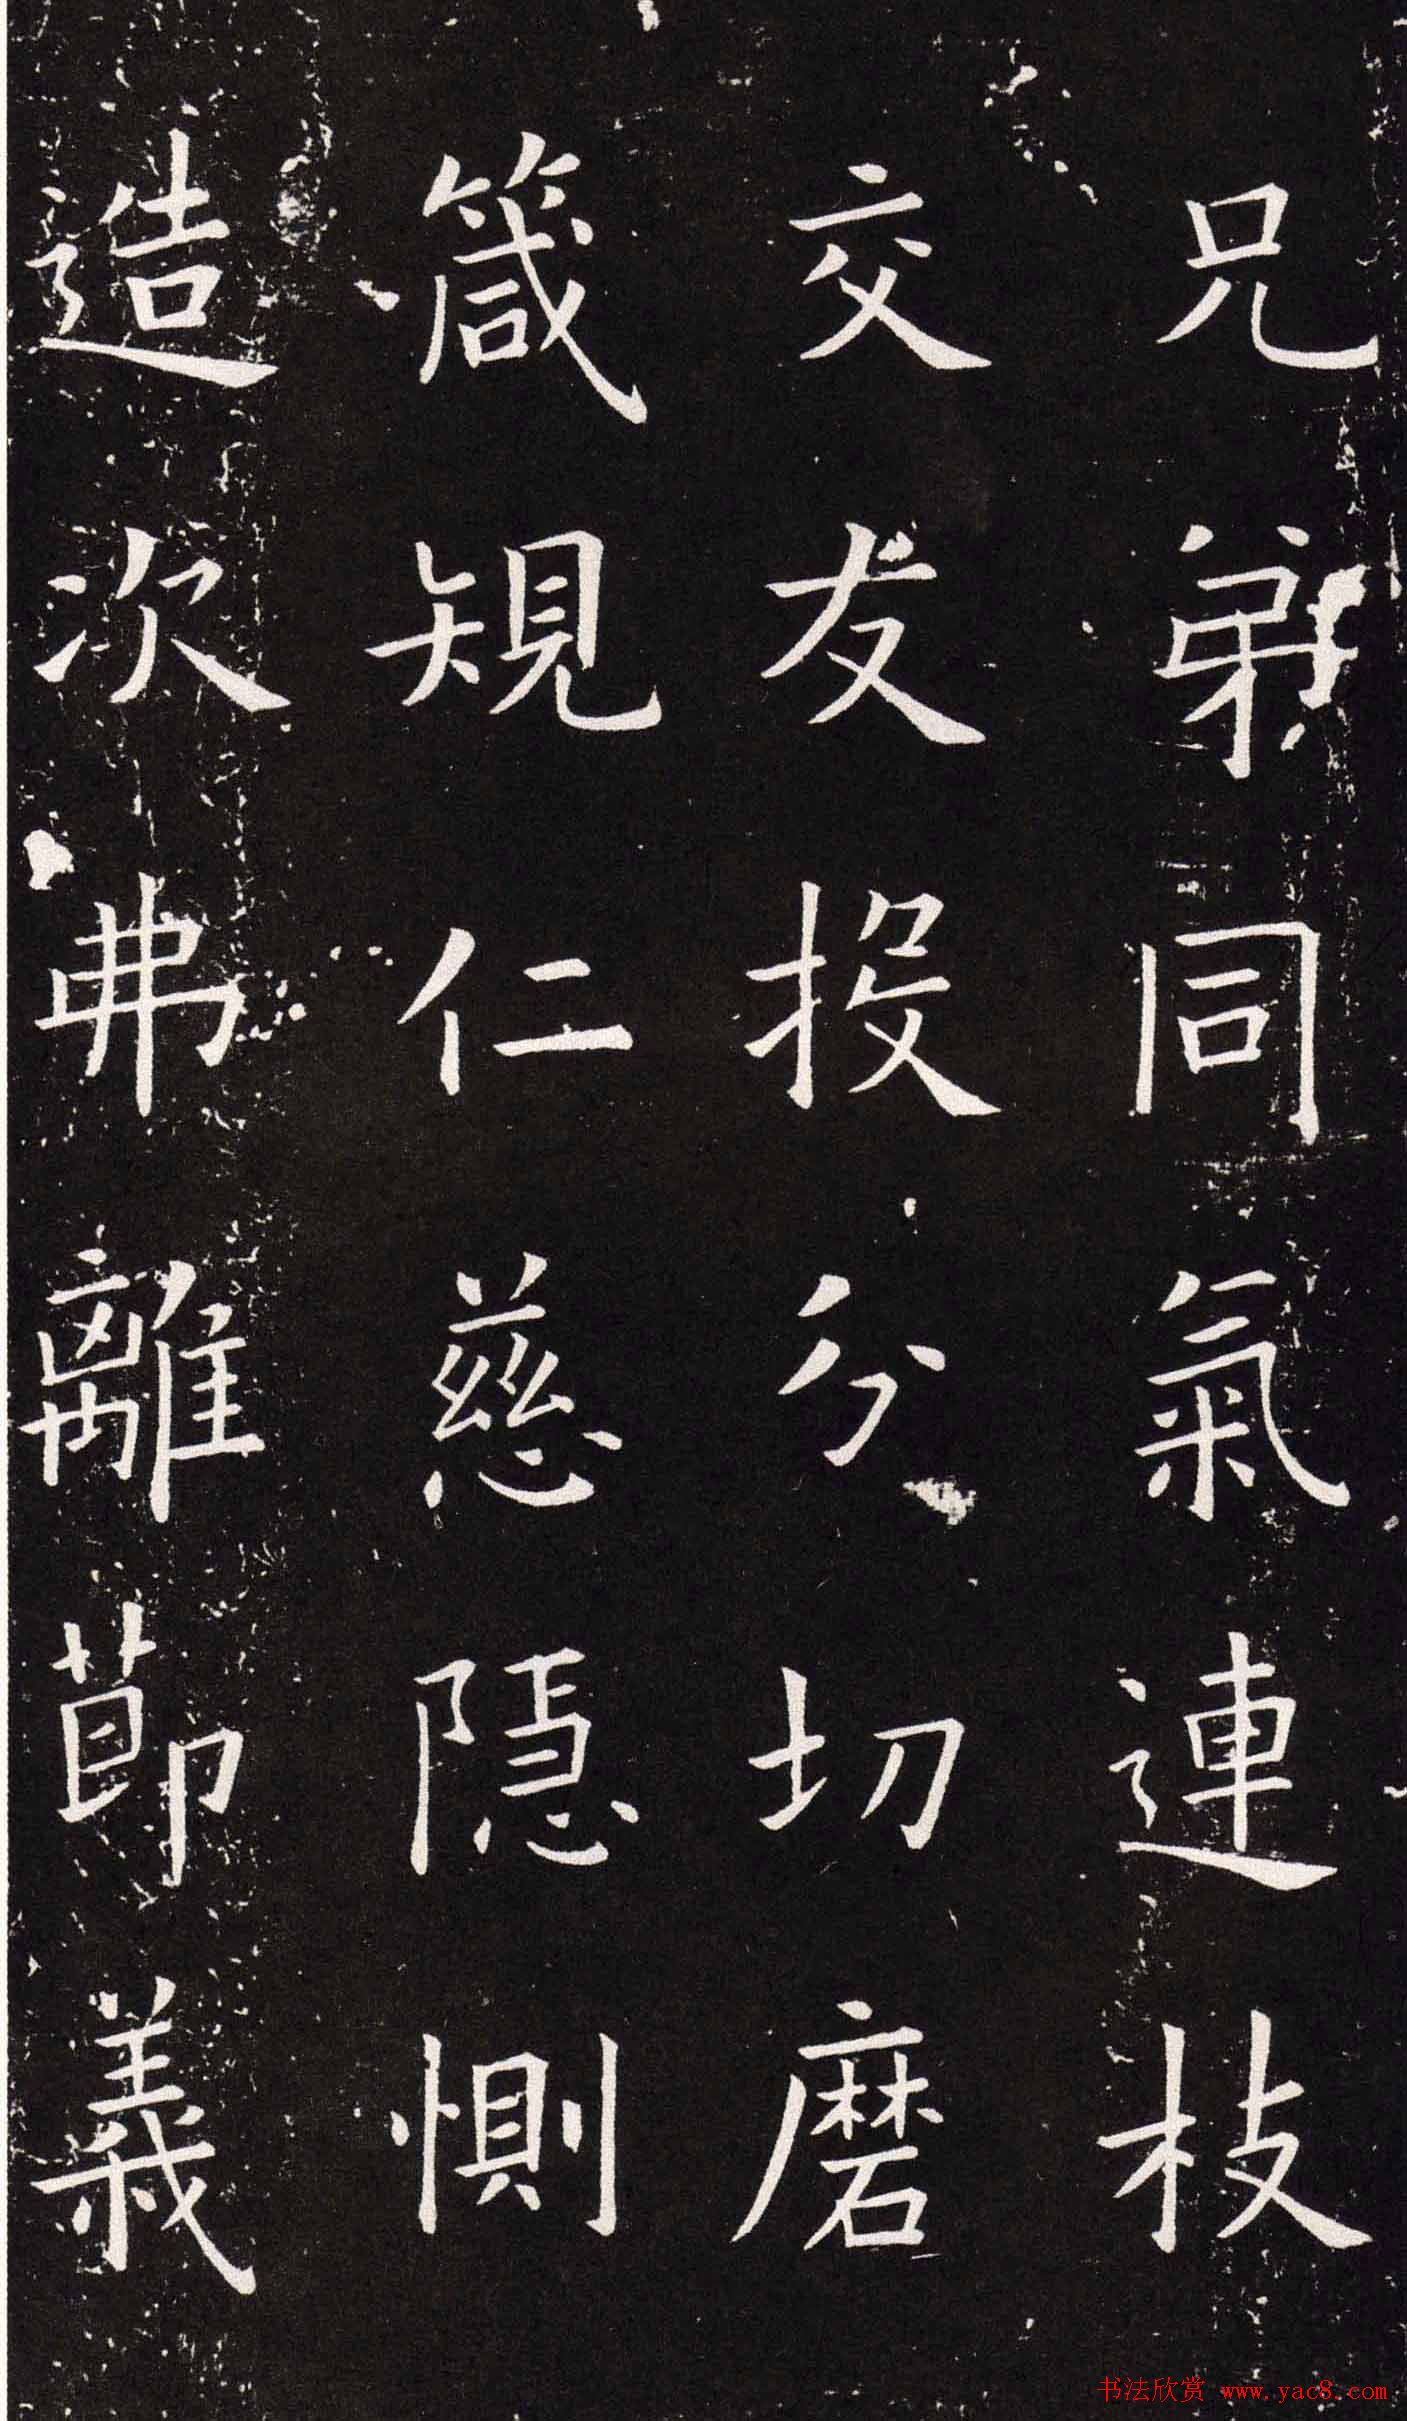 兄弟同氣連枝
交友投分切磨
箴規仁慈隱惻
造次弗離節義
书法欣赏 www.yac8.com